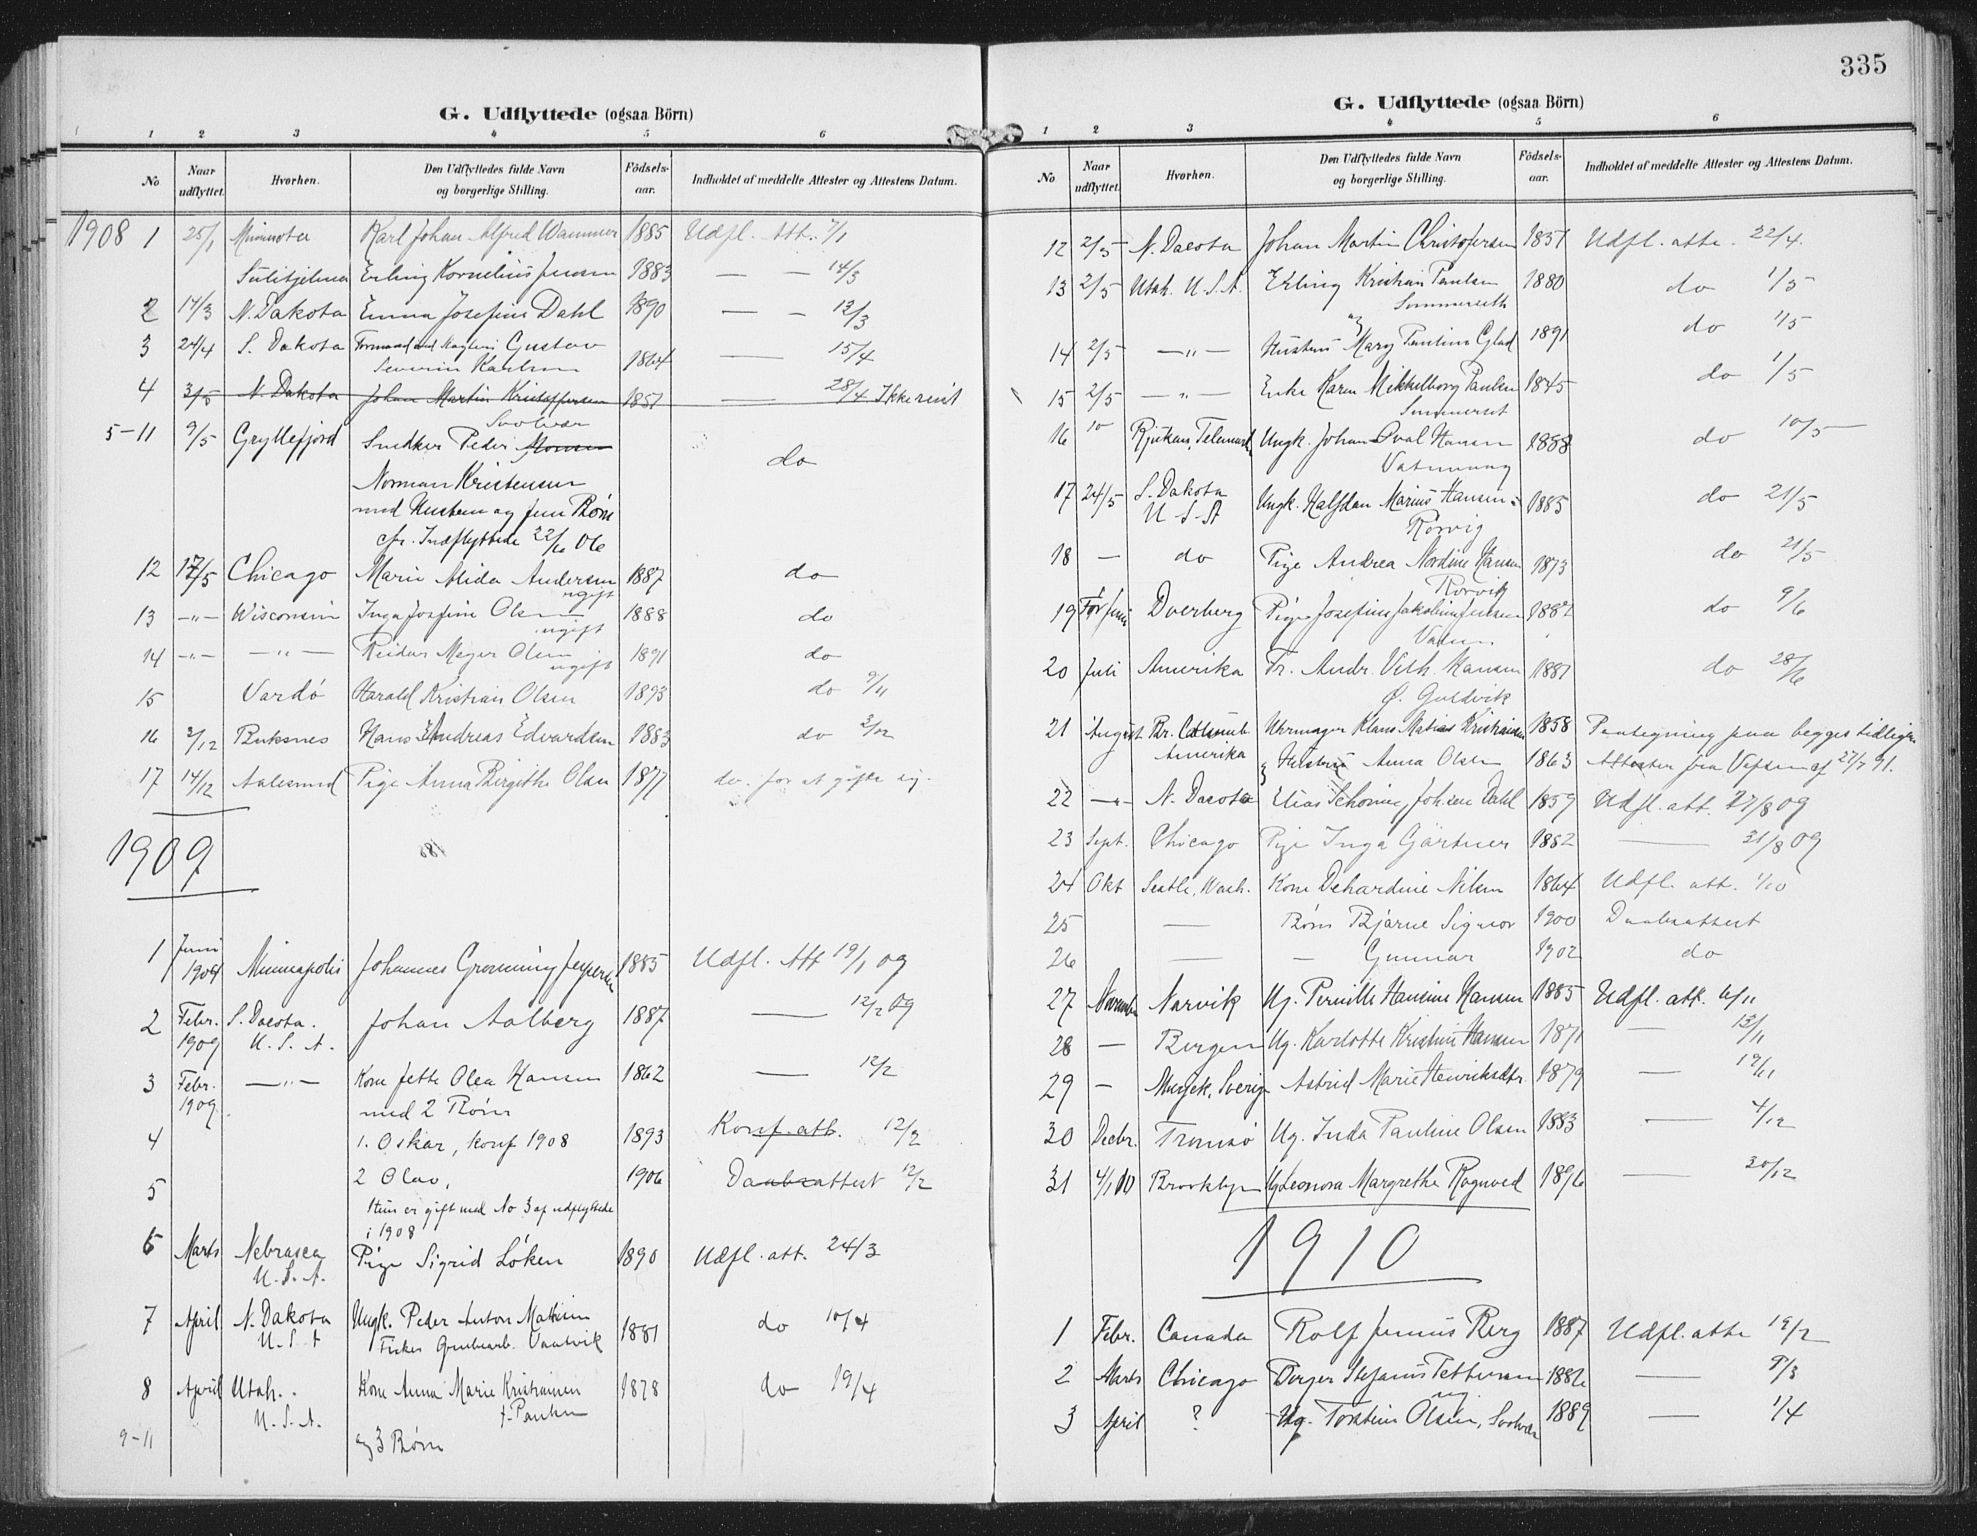 G. Udflyttede (ogsaa Börn)
1 2 3 4 5 6
No
Naar udflyttet.
Hvorhen.
Den Udflyttedes fulde Navn og borgerlige Stilling.
Födsels-aar.
Indholdet af meddelte Attester og Attestens Datum.
1908 1 25/1 Minnesota Karl Johan Alfred Wammer 1885 Udfl. Att. 7/1
Sulitjelma Erling Kornelius Jensen 1883 — — 14/3
2 17/3 N. Dakota Emma Josefine Dahl 1890 — — 12/3
3 24/4 S. Dakota Gustav
Severin Karlsen 1864 — 15/4
4 3/5 N. Dakota Johan Martin Kristoffersen 1851 — 28/4 Ikke reist
Svolvær
5-11 9/5 Gryllefjord Snedker Peder Monsen
do
Norman Kristensen
med Hustru og fem Børn
cfr. Indflyttede 22/10 06
12 17/5 Chicago Marie Alida Andersen 1887 do
ugift
13 —"— Wisconsin Inga Josefine Olsen 1888 do
ugift
14 —"— —"— Reidar Meyer Olsen 1891 do
ugift
15 Vardö Harald Kristian Olsen 1893 do 9/11
16 2/12 Buksnes Hans Andreas Edvardsen 1883 do 2/12
17 14/12 Aalesund Pige Anna Birgitte Olsen 1877 do. for at gifte sig.
1909
1 Juni 1904 Minneapolis Johannes Grønning Jespersen 1885 Udfl. Att 19/1 09
2 Febr. 1909 S. Dacota. U. S. A. Johan Aalberg 1887 — 12/2 09
3 Febr. 1909. —"— Kone Jette Olea Hansen 1862 — 12/2
med 2 Børn
4 1. Oskar, konf 1908 1893 Konf. att. 12/2
5 2 Olav, 1906 Daabsattest 12/2
Hun er gift med No 3 af udflyttede
i 1908
6 Marts Nebrasca U. S. A. Pige Sigrid Löken 1890 Udfl. att. 24/3
7 April N. Dakota U. S. A Ungk. Peder Anton Mathisen 1881 do 10/4
Fisker Grubearb. Vaatvik
8 April Utah. U. S. A. Kone Anna Marie Kristiansen 1878 do 19/4
f. Paulsen
9-11 og 3 Børn
335
G. Udflyttede (ogsaa Börn)
1 2 3 4 5 6
No
Naar udflyttet.
Hvorhen.
Den Udflyttedes fulde Navn og borgerlige Stilling.
Födsels-aar.
Indholdet af meddelte Attester og Attestens Datum.
12 2/5 N. Dacota Johan Martin Christofersen 1851 Udfl. atte. 22/4.
13 2/5 Utah. U.S.A. Erling Kristian Paulsen 1880 do 1/5
Sommerseth
14 2/5 —"— og Hustru Mary Pauline Glad 1891 do 1/5
15 2/5 —"— Enke Karen Mikkelborg Paulsen 1845 do 1/5
Sommerset
16 10 Rjukan, Telemark Ungk. Johan Oval Hansen 1888 do 10/5
17 24/5 S. Dakota U S A Ungk. Halfdan Marius Hansen 1885 do 21/5
Rørvig
18 — do Pige Andrea Nordine Hansen 1873 do 21/5
Rørvik
19 Før Juni Dverberg Pige Josefine Jakobine Jensen 1882 do 9/6
20 Juli Amerika Fr. Andr. Vilh. Hansen 1881 do 28/6
Ø. Guldvik
21 August Br. Columb. Amerika Uhrmager Klaus Matias Kristiansen 1858 Paategning paa begges tidligere
& Hustru Anna Olsen 1863 Attester fra Vefsen af 27/7 91.
22 —"— N. Dacota Elias Schøning Johsen Dahl 1859 Udfl. att. 27/8 09
23 Sept. Chicago Pige Inga Gärtner 1882 — 31/8 09
24 Okt Seatle, Wash. Kone Dehardine Nilsen 1864 Udfl. att. 1/10
25 — Børn Bjarne Signor 1900 Daabsattest
26 — — Gunnar 1902 do
27 November Narvik Ug. Pernille Hansine Hansen 1885 Udfl. att. 6/11
28 — Bergen Ug. Karlotte Kristine Hansen 1871 — 13/11
29 — Murjek, Sverige Astrid Marie Henriksdtr. 1879 — 19/11
30 Decbr. Tromsø Ug. Inda Pauline Olsen 1883 — 4/12
31 4/1 10 Brooklyn Ug Leonora Margrethe Rognved 1896 — 30/12
1910
1 Febr. Canada Rolf Junius Berg 1887 Udfl. atte 19/2
2 Marts Chicago Birger Stefanus Pettersen 1886 — 9/3
ug.
3 April ? Ug. Torstein Olsen, Svolvær 1889 — 1/4